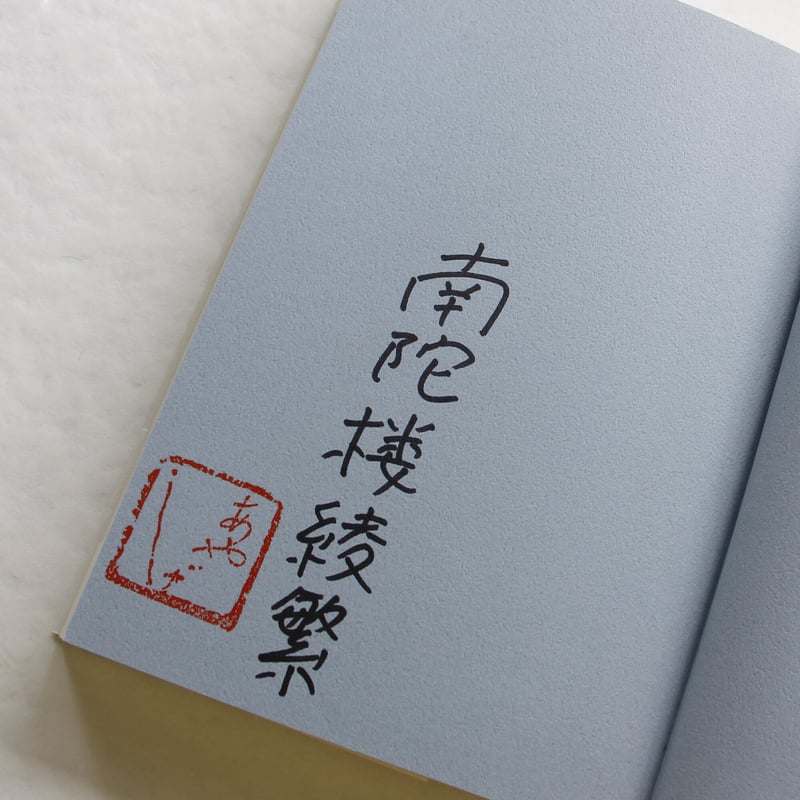 南陀楼綾繁
あや
しげ